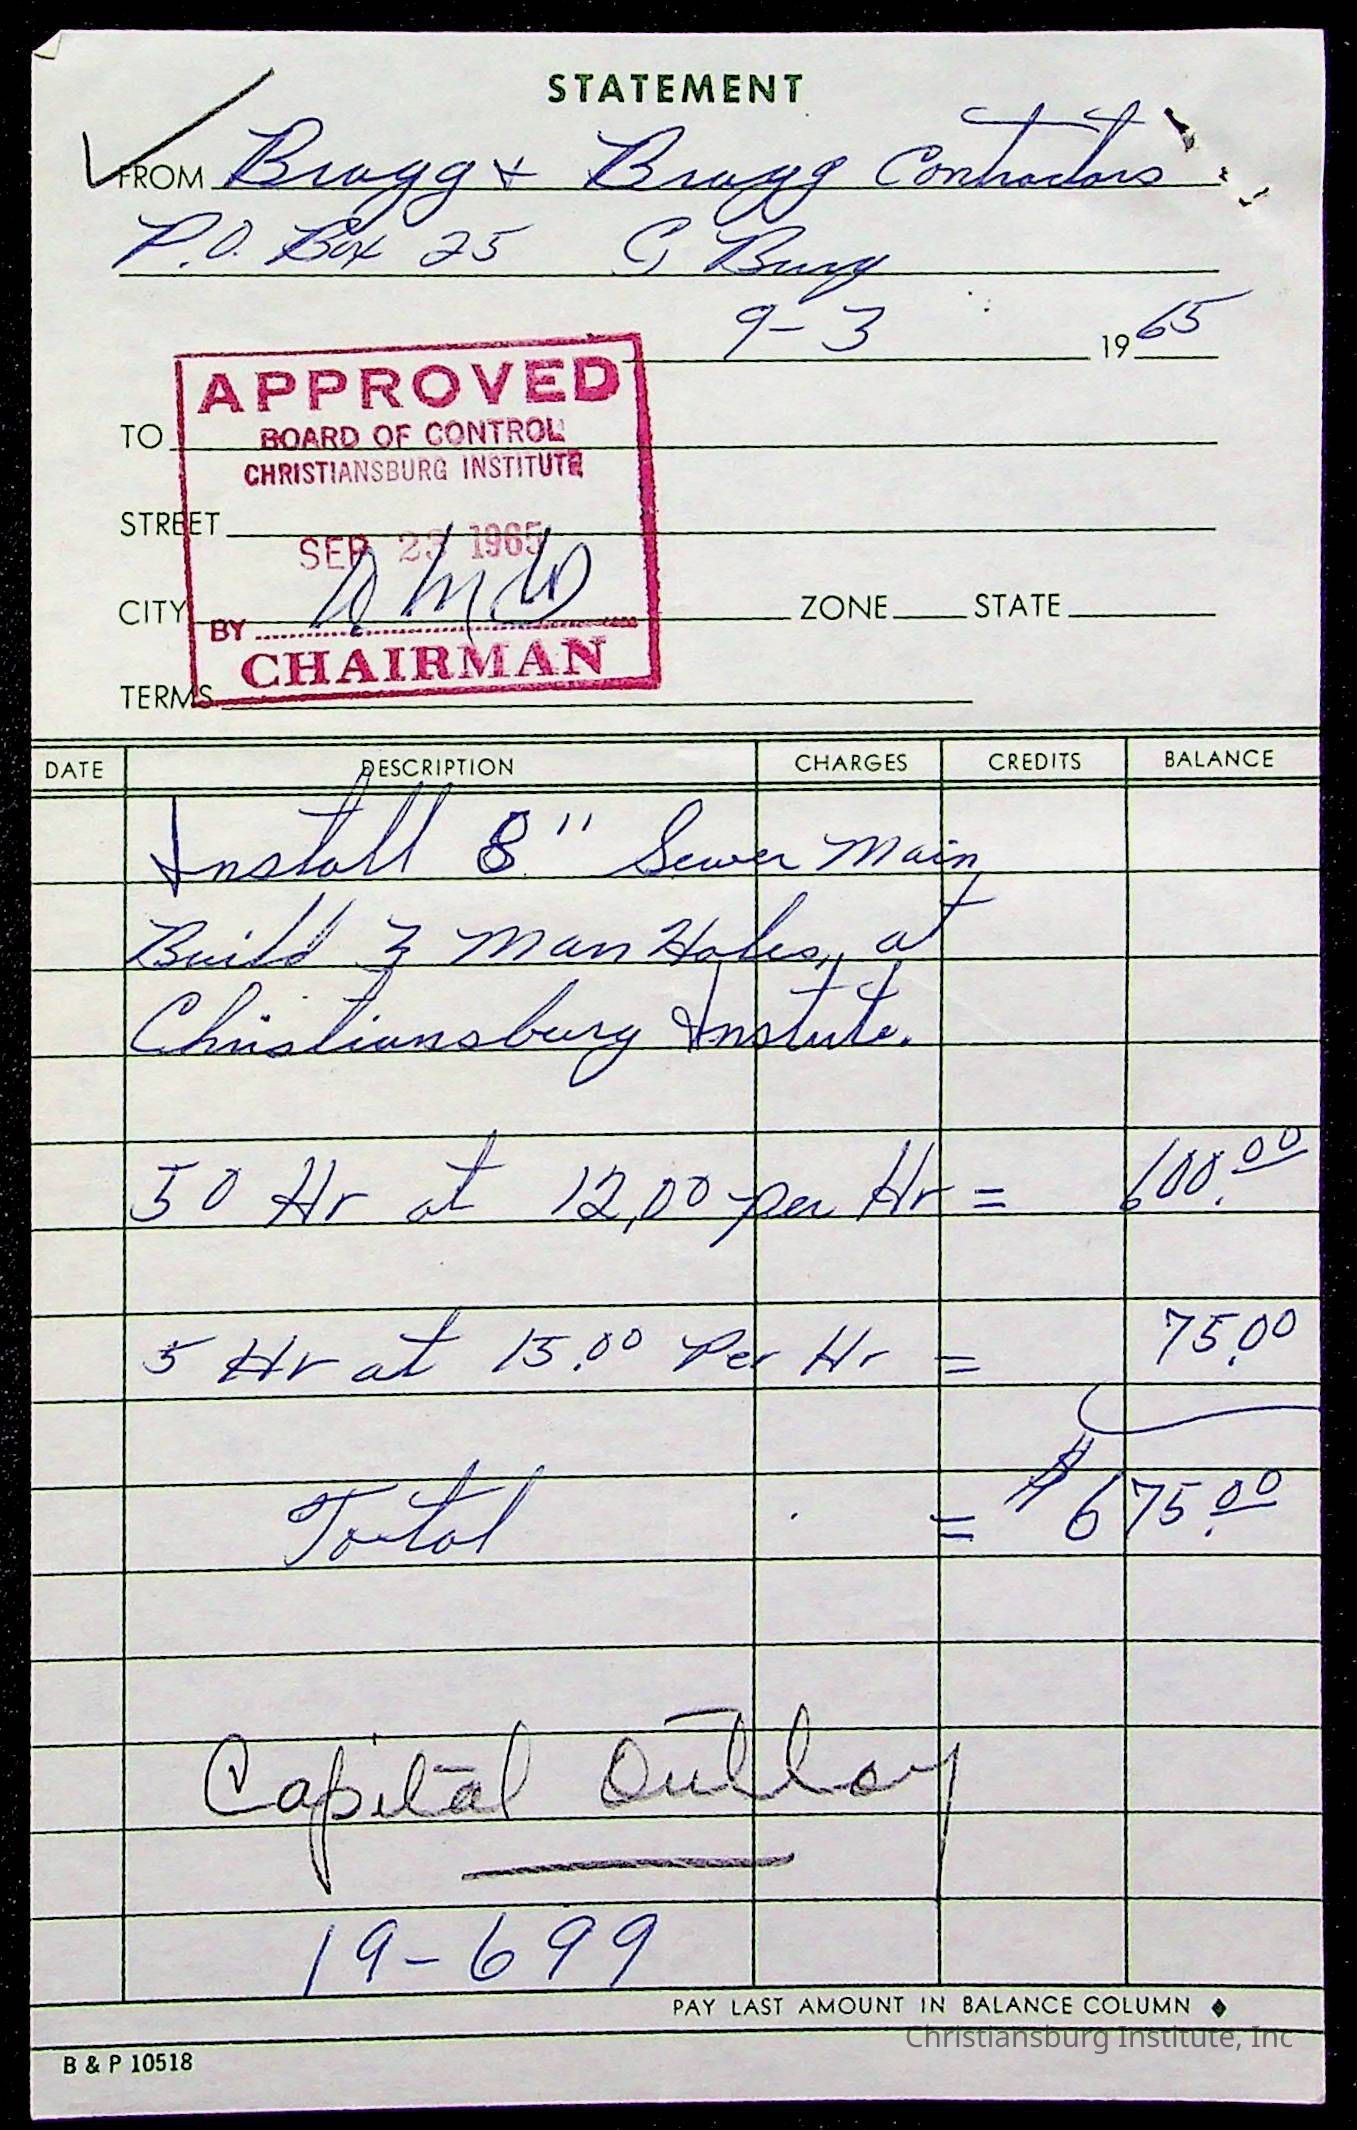 STATEMENT
FROM Bragg & Bragg Contractors
P.O. Box 25 C Burg
9-3 1965
APPROVED
BOARD OF CONTROL
CHRISTIANSBURG INSTITUTE
SEP 23 1965
BY
CHAIRMAN
TO
STREET
CITY ZONE STATE
TERMS
DATE DESCRIPTION CHARGES CREDITS BALANCE
Install 8" Sewer Main
Build 3 Man Holes, at
Christiansburg Instute.
50 Hr at 12,00 per Hr = 600.00
5 Hr at 15.00 Per Hr = 75.00
Tootal = $675.00
Capital Outlay
19-699
PAY LAST AMOUNT IN BALANCE COLUMN
Christiansburg Institute, Inc
B & P 10518